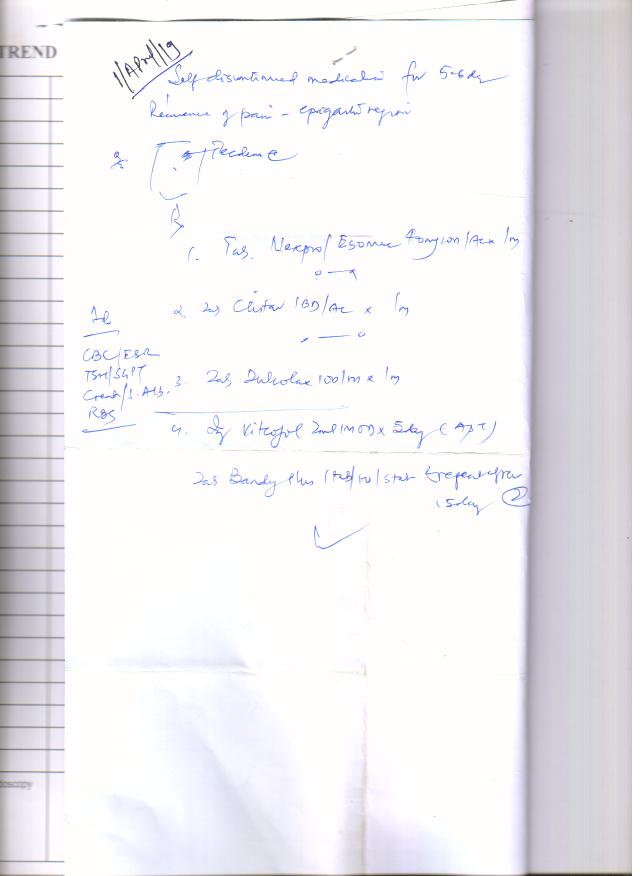 TREND
1/April/19
Self discontinued medication for 5-6 day
Recurrence of pain - epigastric region
R
1. Tab. Nexpro/Esomac 40mg 1OD/AC x 1m
2. Tab 1BD/AC x 1m
CBC/ESR
TSH/SGPT
Creat/S.Alb.
RBS
3. Tab Dulcolax 1OD/ x 1m
4. Inj Vitcofol 2ml IM OD x 5day (AST)
Tab Bandy Plus 1tab/ /stat & repeat after
15day 2
doscopy